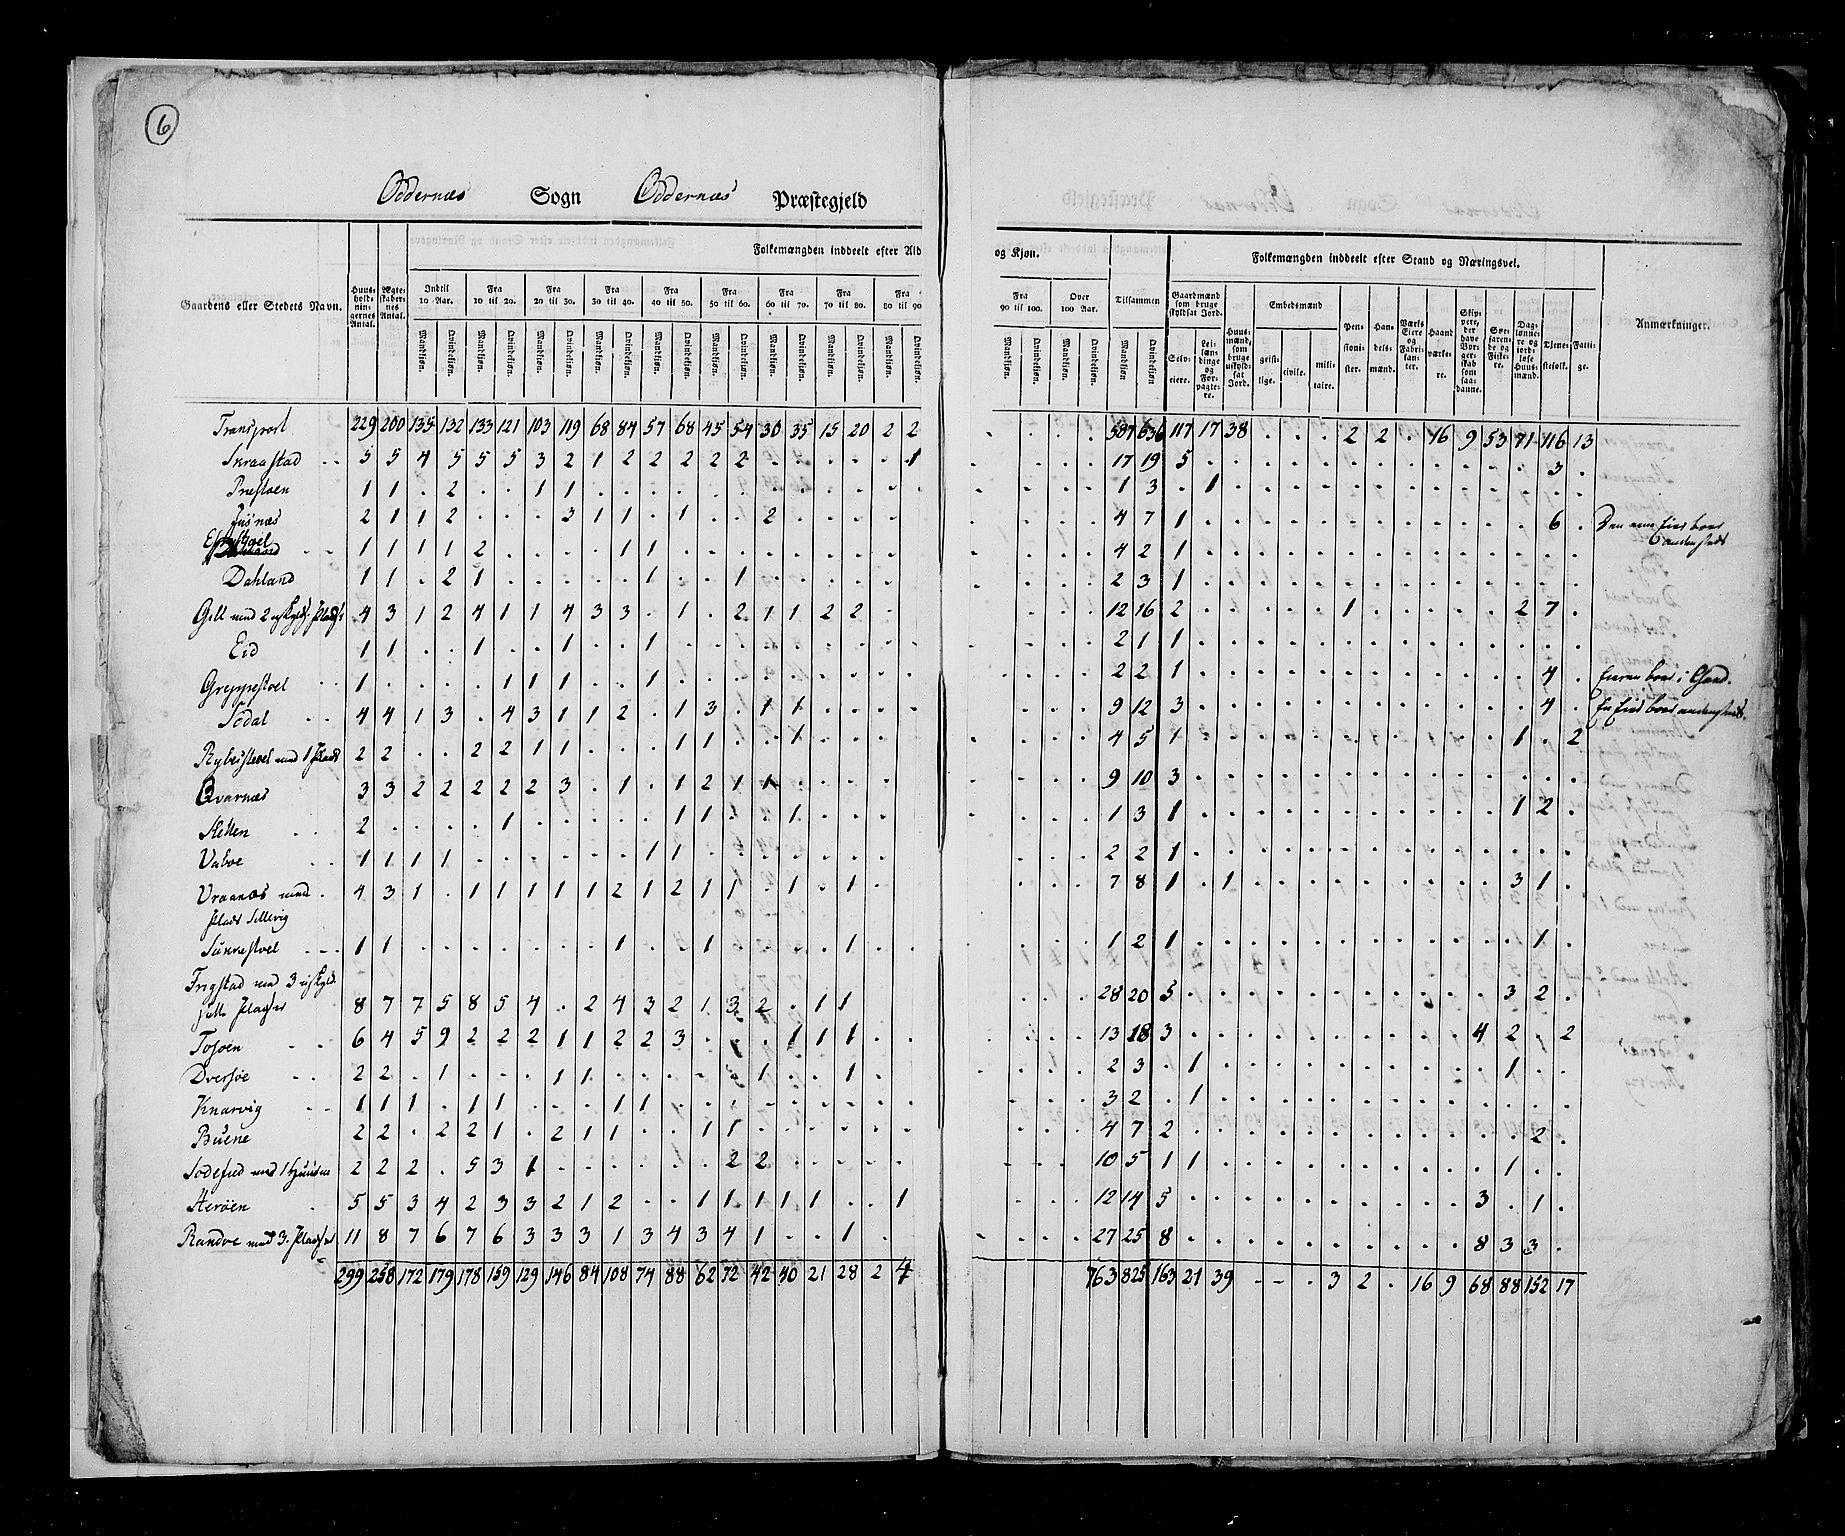 6
Oddernæs Sogn Oddernæs Præstegjeld
Gaardens eller Stedets Navn. Huusholdningernes Antal. Ægteskabernes Antal. Folkemængden inddeelt efter Ald og Kjøn. Tilsammen Folkemængden inddeelt efter Stand og Næringsvei. Anmærkninger.
Indtil 10 Aar. Fra 10 til 20. Fra 20 til 30. Fra 30 til 40. Fra 40 til 50. Fra 50 til 60. Fra 60 til 70. Fra 70 til 80. Fra 80 til 90 Fra 90 til 100. Over 100 Aar.
Mandkjøn. Qvindekjøn. Mandkjøn. Qvindekjøn. Mandkjøn. Qvindekjøn. Mandkjøn. Qvindekjøn. Mandkjøn. Qvindekjøn. Mandkjøn. Qvindekjøn. Mandkjøn. Qvindekjøn. Mandkjøn. Qvindekjøn. Mandkjøn. Qvindekjøn. Mandkjøn. Qvindekjøn. Mandkjøn. Qvindekjøn. Mandkjøn. Qvindekjøn.
Gaardmænd som bruge skyldsat Jord. Selveiere. Leilændinge og Forpagtere. Huusmænd, som bruge uskyldsat Jord. Embedsmænd geistlige. civile. militaire. Pensionister. Handelsmænd. Værks Eiere og Fabrikanter. Haandværkere. Skippere, der have Borgerskab som saadanne. Søefarende og Fiskere. Daglønnere og jordløse Huusmænd. Tjenestefolk. Fattige.
Transport 229 200 135 132 133 121 103 119 68 84 57 68 45 54 30 35 15 20 2 2 587 636 117 17 38 . . . 2 2 . 16 9 53 71 116 13
Skraastad 5 5 4 5 5 5 3 2 1 2 2 2 2 2 . . . . . 1 17 19 5 3
Præstøen 1 1 . 2 . . 1 1 1 3 . 1
2 1 1 2 . . . 3 1 1 . 1 . . 2 4 7 1 6 . Den ene Eier boer
andensteds
1 1 1 1 2 . . . . 1 1 4 2 1
Dahland 1 1 . 2 1 . . . . . 1 . . 1 2 3 1
Gill med 2 4 3 1 2 4 1 1 4 3 3 . 1 . 2 1 1 2 2 12 16 2 1 2 7
Eid 1 1 . . 1 . . 1 . . 1 2 1 1
Greppestøel 1 . . . . 1 1 1 . . 1 2 2 1 4 . Eieren boer i
Sødal 4 4 1 3 . 4 3 1 1 2 . 1 3 . 1 1 9 12 3 4 . En Eier boer andensteds.
med 1 Plads 2 2 . . 2 2 1 1 . . . 1 1 . . 1 4 5 1 1 . 2
Qvarnæs 3 3 2 2 2 2 2 3 . 1 . 1 2 1 1 9 10 3
2 . . . . 1 . . . . . 1 1 . . 1 1 3 1 1 2
Vaboe 1 1 1 1 . . . . . . 1 1 2 2 1
Vraanæs med 4 3 1 . 1 1 1 1 1 2 1 2 1 1 . 1 . 1 7 8 1 . 1 3 1
Plads
1 1 . . . . . . . 1 . . 1 . . . . 1 1 2 1 1
Frigstad med 3
8 7 7 5 8 5 4 . 2 4 3 2 1 3 2 . 1 1 28 20 5 3 2
Tosøen 6 4 5 9 2 2 2 1 1 2 2 3 . . . 1 1 1 13 18 3 4 2 . 2
Dversøe 2 2 . 1 . . . 1 1 . . . . . 1 . . 1 2 3 . 1 1
Knarvig 1 1 1 . 1 1 . . . 1 1 3 2 . 1
Buene 2 2 . 2 2 1 . 2 1 1 . . 1 1 4 7 2 2
med 1 2 2 2 . 5 3 1 . . . . . . 2 2 10 5 1 1 1
Herøen 5 5 3 4 2 3 3 2 1 2 . . 1 1 1 1 1 . . 1 12 14 5 3 . 1
Randøe med 3 11 8 7 6 7 6 3 3 3 1 3 4 3 4 1 . . 1 27 25 8 8 3 3
299 258 172 179 178 159 129 146 84 108 74 88 62 72 42 40 21 28 2 4 763 825 163 21 39 - - . 3 2 . 16 9 68 88 152 17